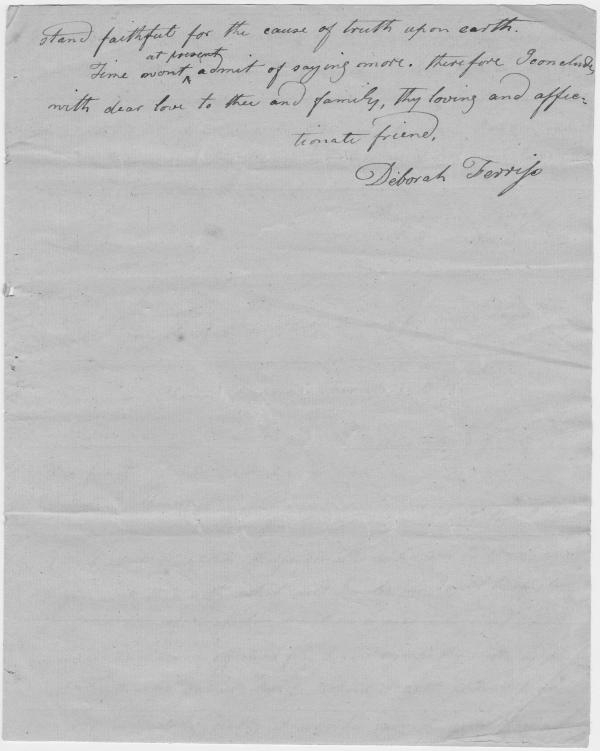 stand faithful for the cause of truth upon earth.
at present
Time wont ^ admit of saying more. therefore I conclude
with dear love to thee and family, thy loving and affec=
tionate friend.
Deborah Ferriss